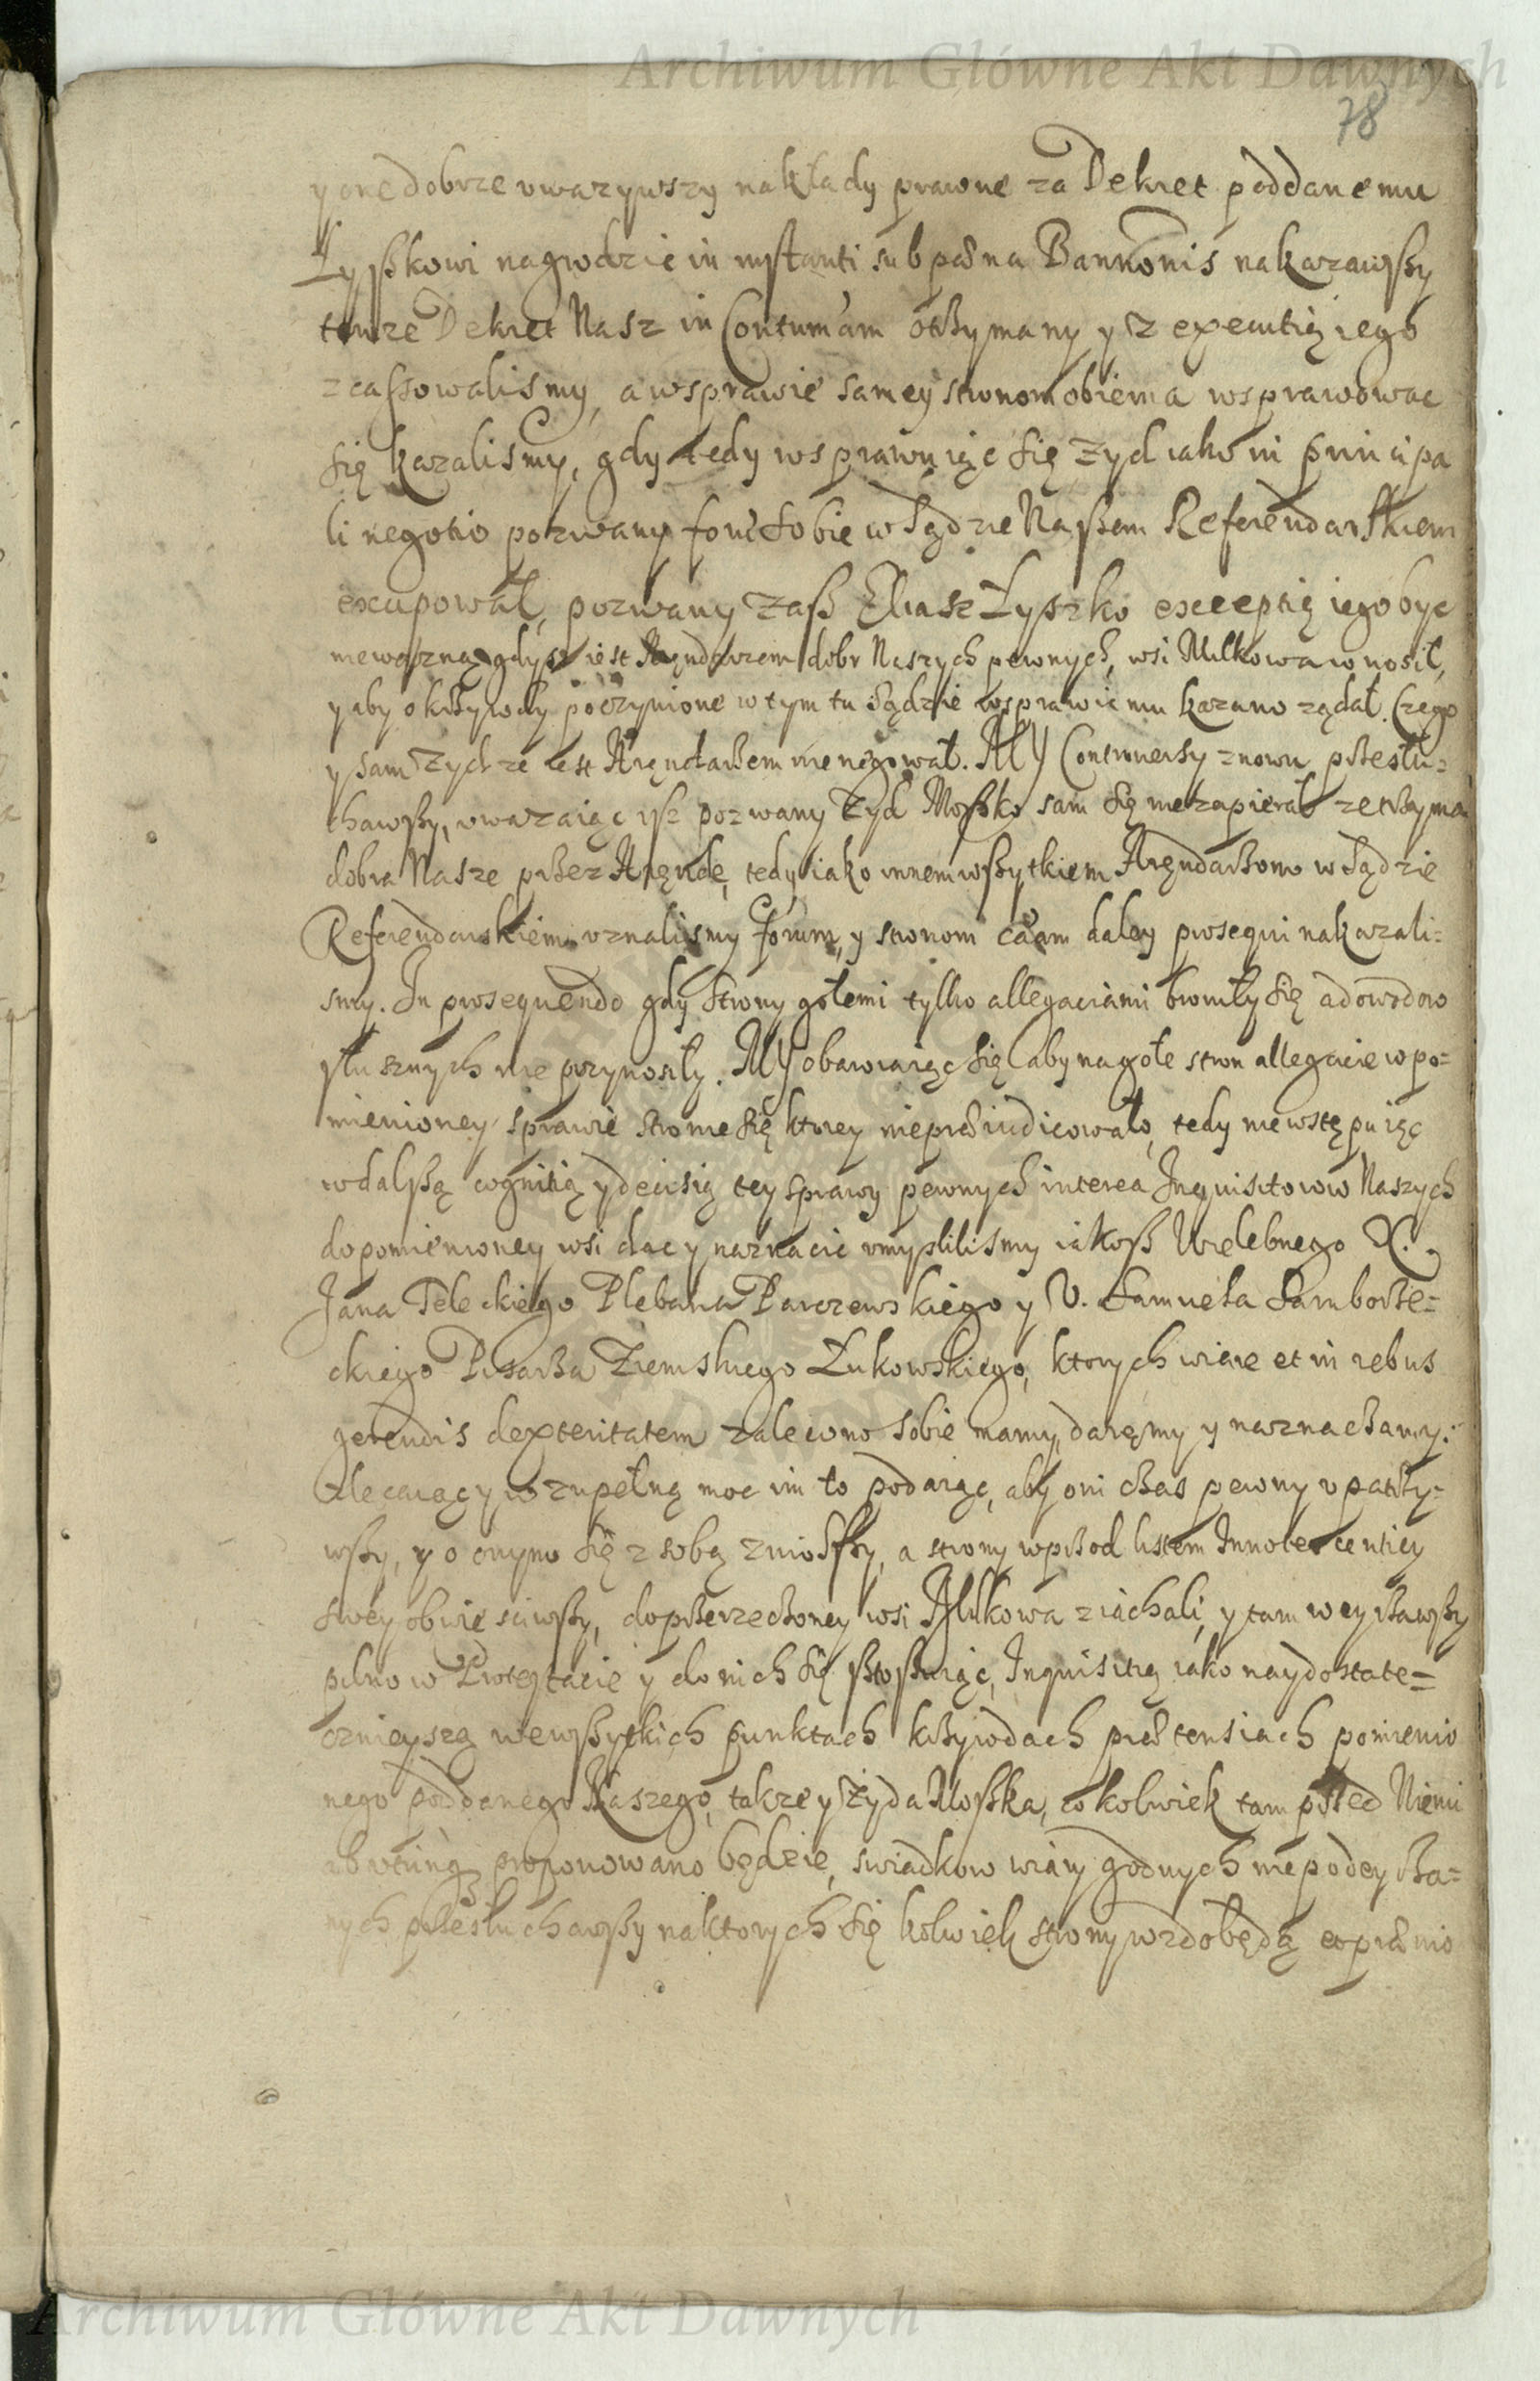 Archiwum Główne Akt Dawnych
78
y one dobrze uwazywszy nakłady prawne za Dekret poddanemu
Łyszkowi nagrodzic in instanti sub pæna Bannonis nakazawszy
tenze Dekret Nasz in Contum'am otrzymany y z executią iego
zcassowalismy, a w sprawie samey stronom obiema rosprawowac
się kazalismy, gdy tedy rosprawuiąc się Zyd iako in principa
li negotio pozwany fori sobie w Sądzie Naszem Referendarskiem
excipował, pozwany zasz Eliasz Łyszko exceptią iego byc
niewazną, gdysz iest Arędarzem dobr Naszych pewnych, wsi Milkowa wnosił,
y aby o krzywdy poczynione w tym tu Sądzie rosprawic mu kazano ządał. Czego
y sam Zyd ze iest Arędarzem nie negował. MY Controversy znowu przesłu=
chawszy, uwazaiąc isz pozwany Zyd Moszko sam się nie zapierał ze trzyma
dobra Nasze przez Arędę, tedy iako innem wszytkiem Arędarzom w Sądzie
Referendarskiem uznalismy forum, y stronom ca'am daley prosequi nakazali=
smy. In prosequendo gdy strony gołemi tylko allegaciami broniły się a dowodow
słusznych nie przynosiły. MY obawiaiąc się aby na gołe stron allegacie w po=
mienioney sprawie stronie się ktorey niepræiudicowało, tedy nie wstępuiąc
w dalszą cognitią y decisią tey sprawy pewnych interea Inquisitorow Naszych
do pomienioney wsi dac y naznacic umyslilismy iakosz Wielebnego X.
Jana Teleckiego Plebana Parczewskiego y U. Samuela Samborze=
ckiego Pisarza Ziemskiego Łukowskiego, ktorych wiare et in rebus
gerendis dexteritatem zalecono sobie mamy, daięmy y naznaczamy.
Zlecaiący w zupełną moc im to podaiąc, aby oni czas pewny upatrzy=
wszy, y o onym się z sobą zniosszy, a strony wprzod listem Innotescentiey
swey obwiesciwszy, do przerzeczoney wsi Milkowa ziachali, y tam weyrzawszy
pilno w Protestacie y do nich się stosuiąc, Inquisitią iako naydostate=
cznieyszą we wszytkich punktach krzywdach prætensiach pomienio
nego poddanego Naszego, takze y Zyda Moszka, co kolwiek tam przed Niemi
ab utrinq proponowano będzie, swiadkow wiary godnych nie podeyrza=
nych przesłuchawszy na ktorych się kolwiek strony wzdobędą
Archiwum Główne Akt Dawnych